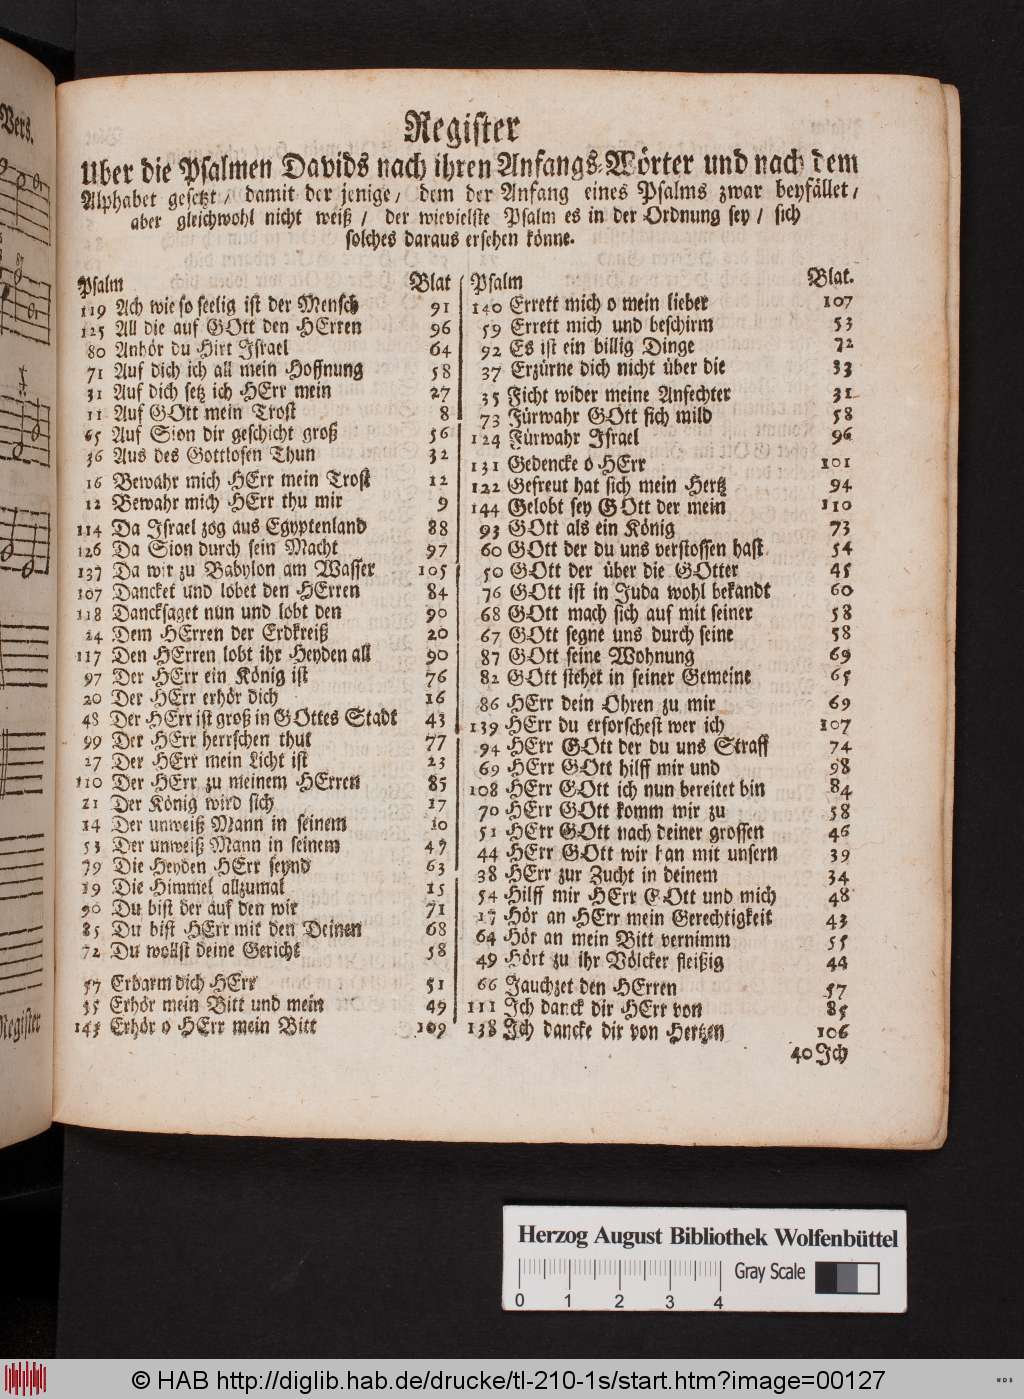 Vers.
Register
Register
Uber die Psalmen Davids nach ihren Anfangs-Wörter und nach dem
Alphabet gesetzt / damit der jenige / dem der Anfang eines Psalms zwar beyfället /
aber gleichwohl nicht weiß / der wievielste Psalm es in der Ordnung sey / sich
solches daraus ersehen könne.
Psalm Blat
119 Ach wie so seelig ist der Mensch 91
125 All die auf GOtt den HErren 96
80 Anhör du Hirt Israel 64
71 Auf dich ich all mein Hoffnung 58
31 Auf dich setz ich HErr mein 27
11 Auf GOtt mein Trost 8
65 Auf Sion dir geschicht groß 56
36 Aus des Gottlosen Thun 32
16 Bewahr mich HErr mein Trost 12
12 Bewahr mich HErr thu mir 9
114 Da Israel zog aus Egyptenland 88
126 Da Sion durch sein Macht 97
137 Da wir zu Babylon am Wasser 105
107 Dancket und lobet den HErren 84
118 Dancksaget nun und lobt den 90
24 Dem HErren der Erdkreiß 20
117 Den HErren lobt ihr Heyden all 90
97 Der HErr ein König ist 76
20 Der HErr erhör dich 16
48 Der HErr ist groß in GOttes Stadt 43
99 Der HErr herrschen thut 77
27 Der HErr mein Licht ist 23
110 Der HErr zu meinem HErren 85
21 Der König wird sich 17
14 Der unweiß Mann in seinem 10
53 Der unweiß Mann in seinem 47
79 Die Heyden HErr seynd 63
19 Die Himmel allzumal 15
90 Du bist der auf den wir 71
85 Du bist HErr mit den Deinen 68
72 Du wollst deine Gericht 58
57 Erbarm dich HErr 51
55 Erhör mein Bitt und mein 49
143 Erhör o HErr mein Bitt 109
Psalm Blat.
140 Errett mich o mein lieber 107
59 Errett mich und beschirm 53
92 Es ist ein billig Dinge 72
37 Erzürne dich nicht über die 33
35 Ficht wider meine Anfechter 31
73 Fürwahr GOtt sich mild 58
124 Fürwahr Israel 96
131 Gedencke o HErr 101
122 Gefreut hat sich mein Hertz 94
144 Gelobt sey GOtt der mein 110
93 GOtt als ein König 73
60 GOtt der du uns verstossen hast 54
50 GOtt der über die GOtter 45
76 GOtt ist in Juda wohl bekandt 60
68 GOtt mach sich auf mit seiner 58
67 GOtt segne uns durch seine 58
87 GOtt seine Wohnung 69
82 GOtt stehet in seiner Gemeine 65
86 HErr dein Ohren zu mir 69
139 HErr du erforschest wer ich 107
94 HErr GOtt der du uns Straff 74
69 HErr GOtt hilff mir und 98
108 HErr GOtt ich nun bereitet bin 84
70 HErr GOtt komm mir zu 58
51 HErr GOtt nach deiner grossen 46
44 HErr GOtt wir han mit unsern 39
38 HErr zur Zucht in deinem 34
54 Hilff mir HErr GOtt und mich 48
17 Hör an HErr mein Gerechtigkeit 43
64 Hör an mein Bitt vernimm 55
49 Hört zu ihr Völcker fleißig 44
66 Jauchzet den HErren 57
111 Ich danck dir HErr von 85
138 Ich dancke dir von Hertzen 106
40 Ich
Herzog August Bibliothek Wolfenbüttel
Gray Scale
0 1 2 3 4
© HAB http://diglib.hab.de/drucke/tl-210-1s/start.htm?image=00127
WDB